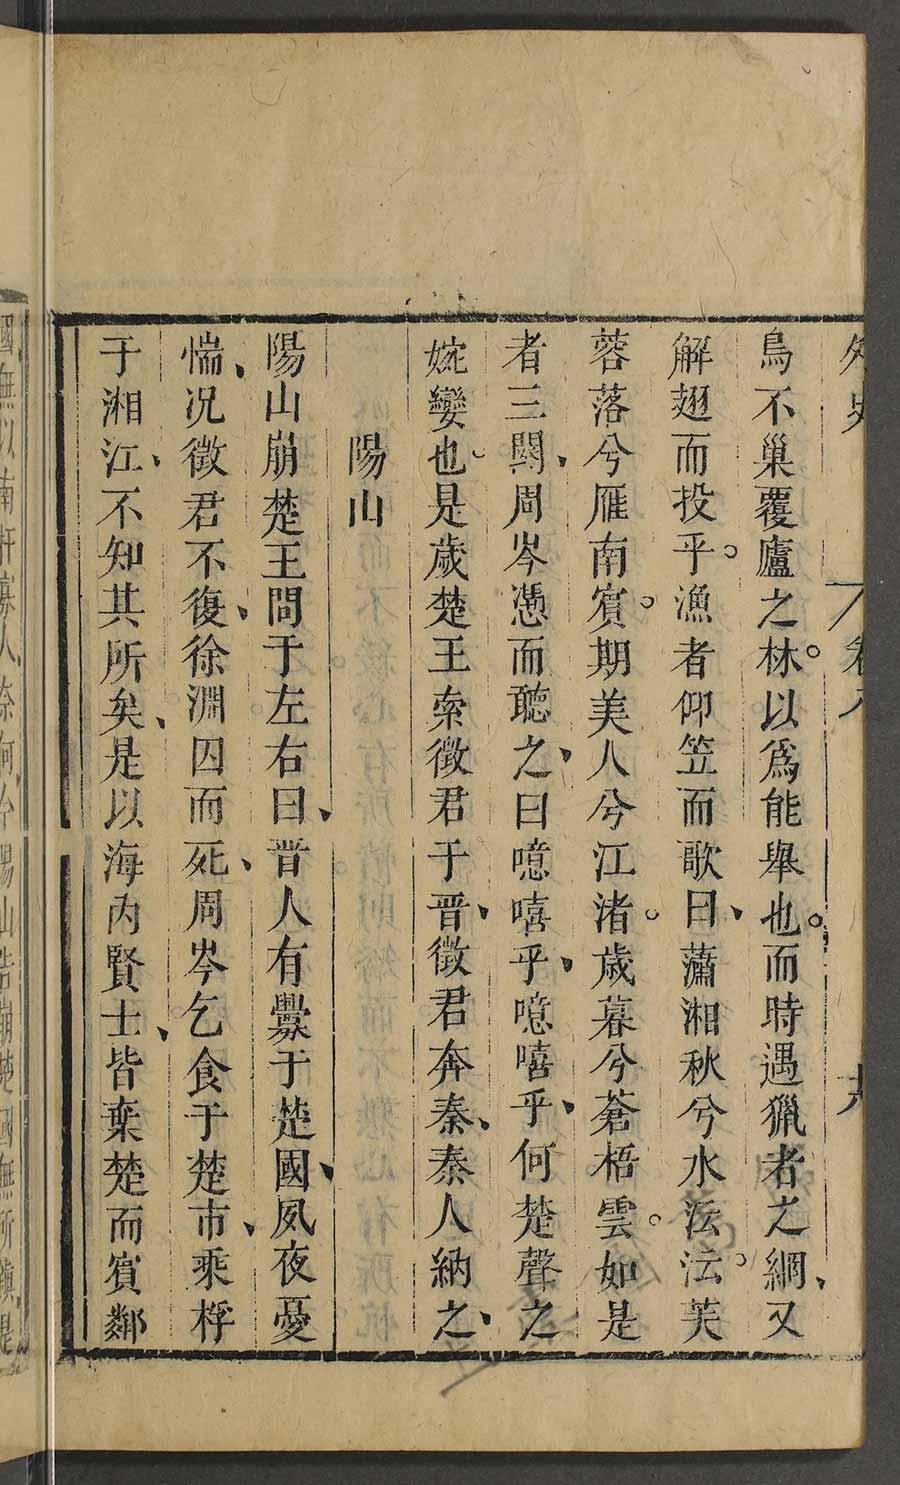 鳥不巢覆廬之林。以爲能舉也。而時遇獵者之網、又
解翅而投乎。漁者仰笠而歌曰、瀟湘秋兮水沄沄。芙
蓉落兮雁南賓。期美人兮江渚。歲暮兮蒼梧雲。如是
者三闋、周岑憑而聽之、曰噫嘻乎、噫嘻乎、何楚聲之
婉孌也。是歲楚王索徵君于晋、徵君奔秦、秦人納之、
陽山
陽山崩楚王問于左右曰、晋人有釁于楚國、夙夜憂
惴、况徵君不復、徐淵囚而死、周岑乞食于楚市、乘桴
于湘江、不知其所矣、是以海內賢士、皆棄楚而賓鄰